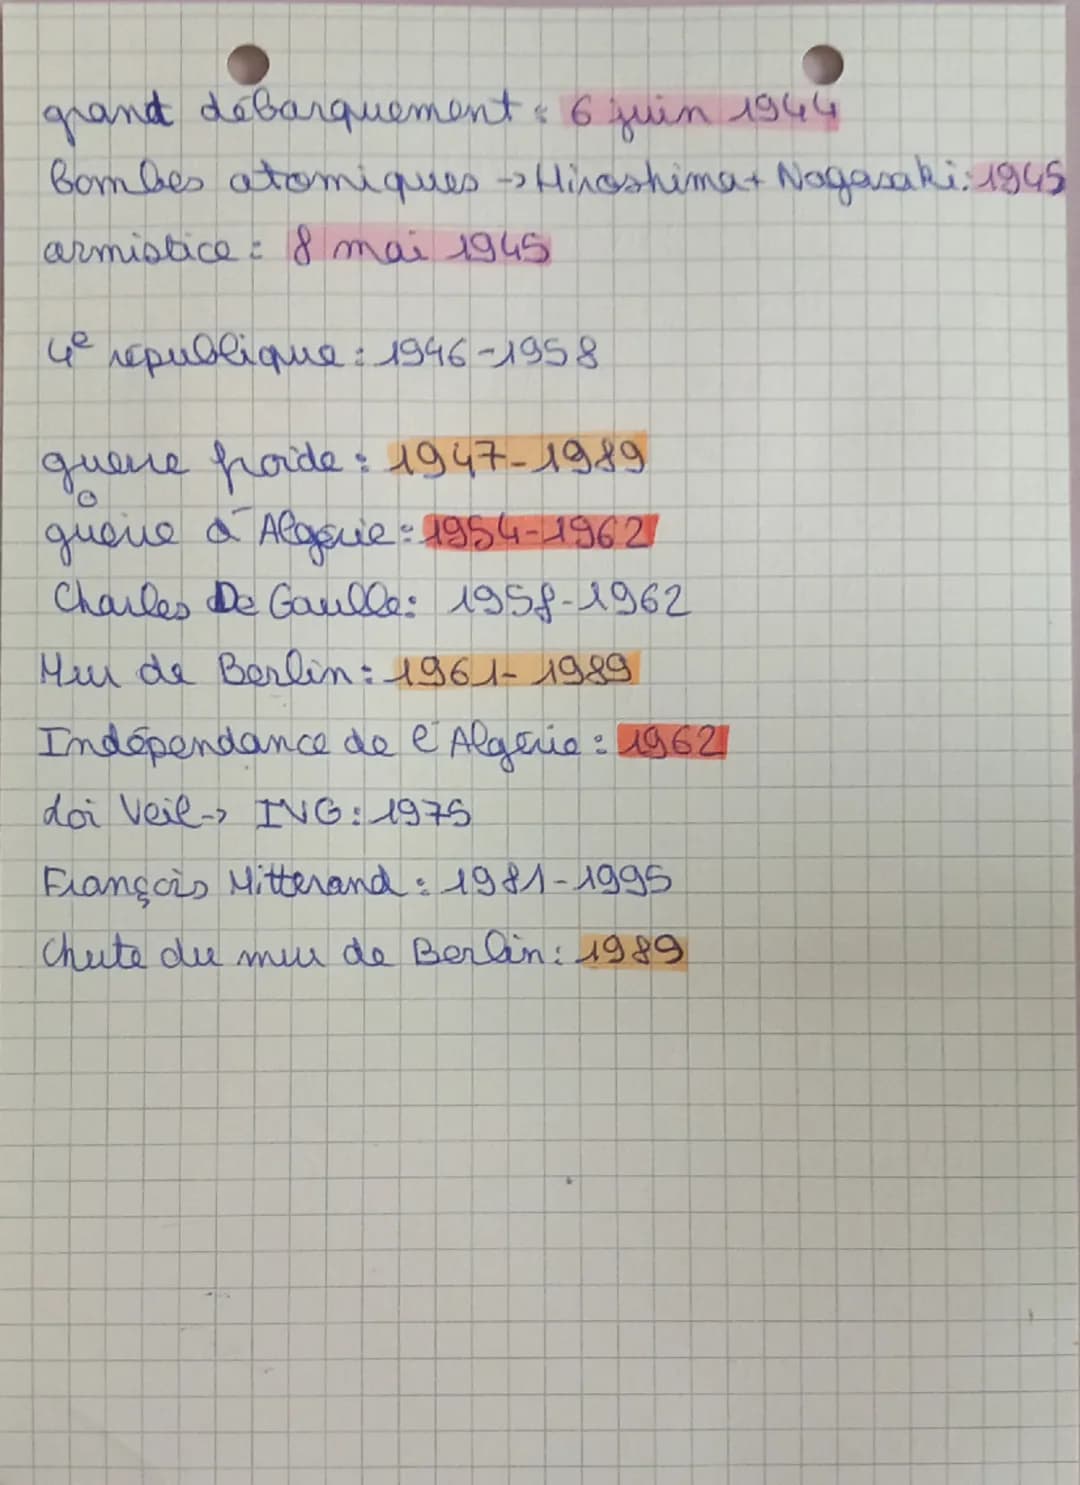 grand débarquement : 6 juin 1944
Bombes atomiques -> Hiroshima + Nagasaki : 1945
armistice : 8 mai 1945
4e république : 1946-1958
guerre froide : 1947-1989
guerre d'Algérie : 1954-1962
Charles De Gaulle : 1958-1962
Mur de Berlin : 1961-1989
Indépendance de l'Algérie : 1962
Loi Veil -> IVG : 1975
François Mitterand : 1981-1995
Chute du mur de Berlin : 1989